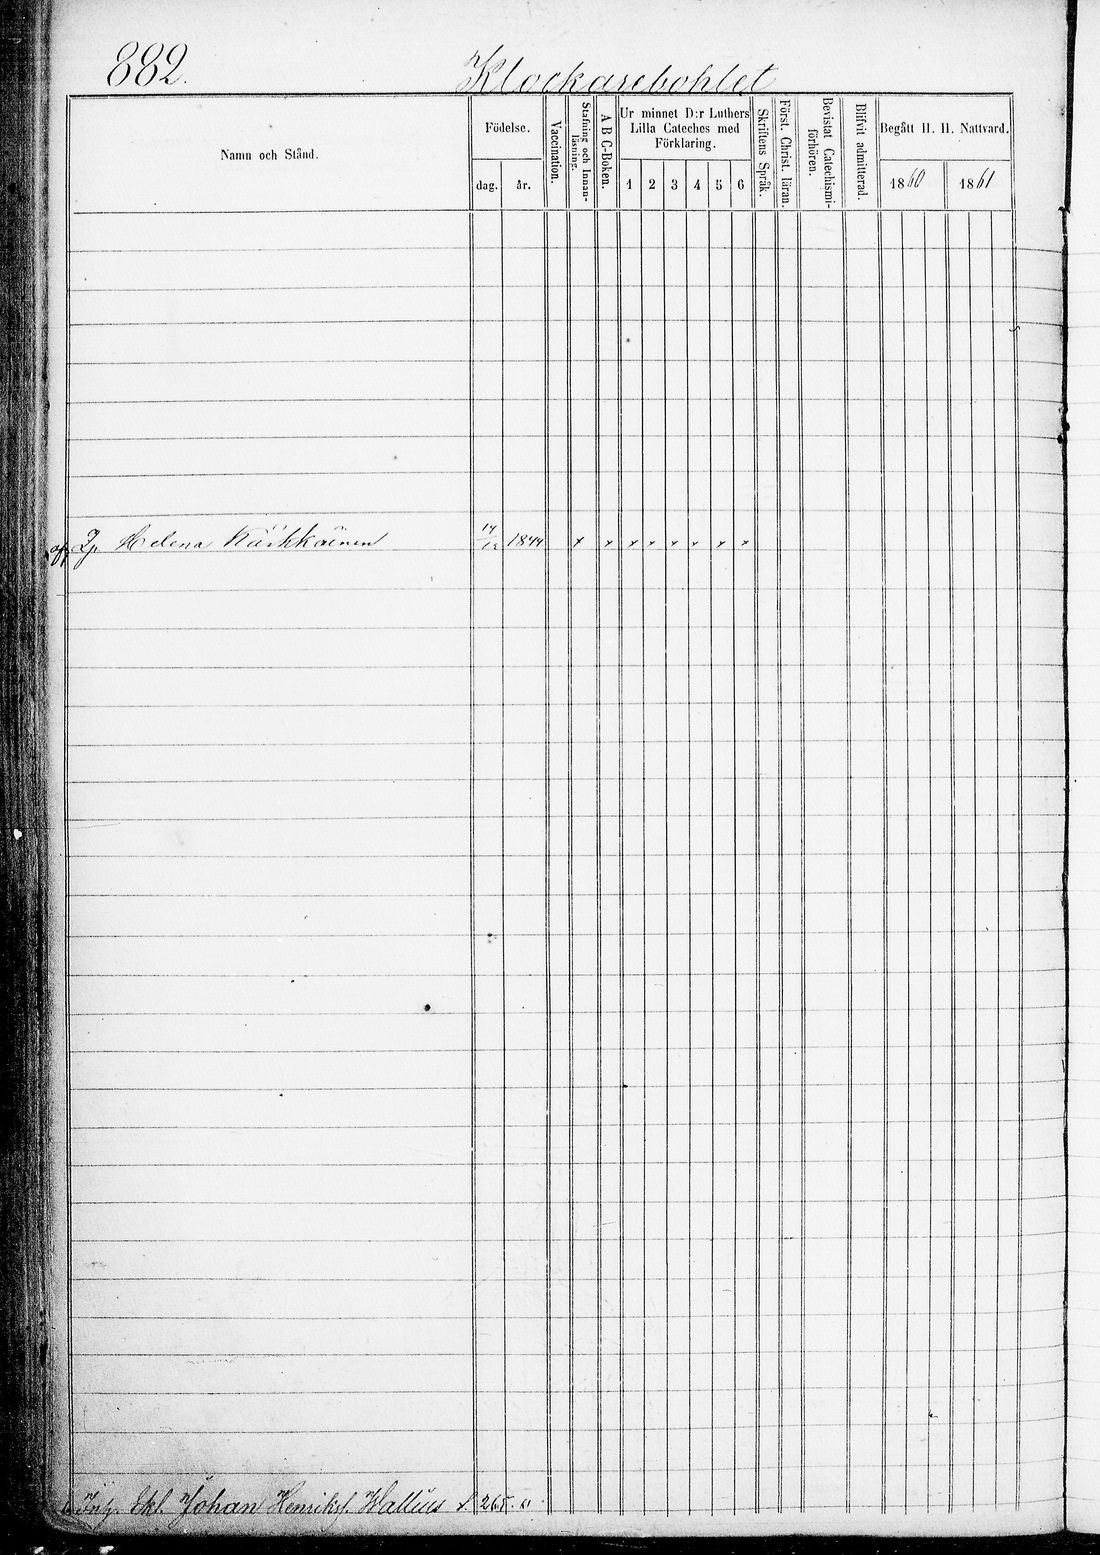 882.
Klockarebohlet
Namn och Stånd.
Födelse.
dag.
år.
Vaccination.
Stafning och Innan-
läsning.
A B C-Boken.
Ur minnet D:r Luthers
Lilla Cateches med
Förklaring.
1 2 3 4 5 6
Skriftens Språk.
Först. Christ. läran.
Bevistat Catechismi-
förhören.
Blifvit admitterad.
Begått H. H. Nattvard.
1860 1861
Helena Kärkkäinen 14/12 1844 x x x x x x x x
Johan Henriksf. Hallius s. 265.